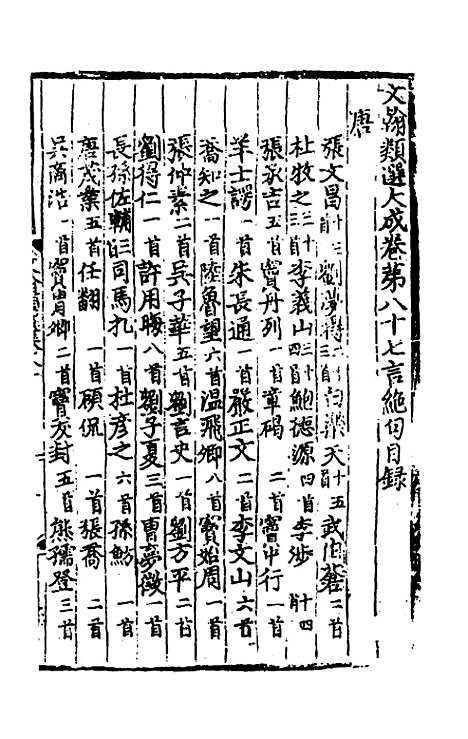 文翰類選大成卷第八十七言絶句目録
唐
張文昌 劉夢得 白樂天十五 武伯蒼二首
杜牧之三十首 李義山四十首 鮑德源四首 李渉十四首
張承吉五首 竇丹列一首 韋碣二首 竇中行一首
羊士諤一首 朱長通一首 嚴正文二首 李文山六首
喬知之一首 陸魯望六首 温飛卿八首 竇始周一首
張仲素二首 吳子華五首 劉言史一首 劉方平二首
劉得仁一首 許用晦八首 劉子夏三首 曹夢徵一首
長孫佐輔三首 司馬扎一首 杜彦之六首 孫魴一首
唐茂業五首 任翻一首 顧況一首 張喬二首
吳商浩一首 竇胄卿二首 竇友封五首 熊孺登三首